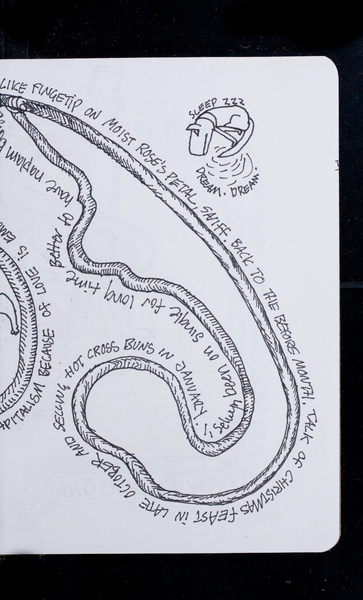 SLEEP ZZZ
DREAM. DREAM
LIKE FINGETIP ON MOIST ROSE'S PETAL SHIFT BACK TO THE BEFORE MONTH TALK OF CHRISTMAS FEAST IN LATE OCTOBER AND SELLING HOT CROSS BUNS IN JANUARY!
been on single for long time better to have
PITALISM BECAUSE OF LOVE IS